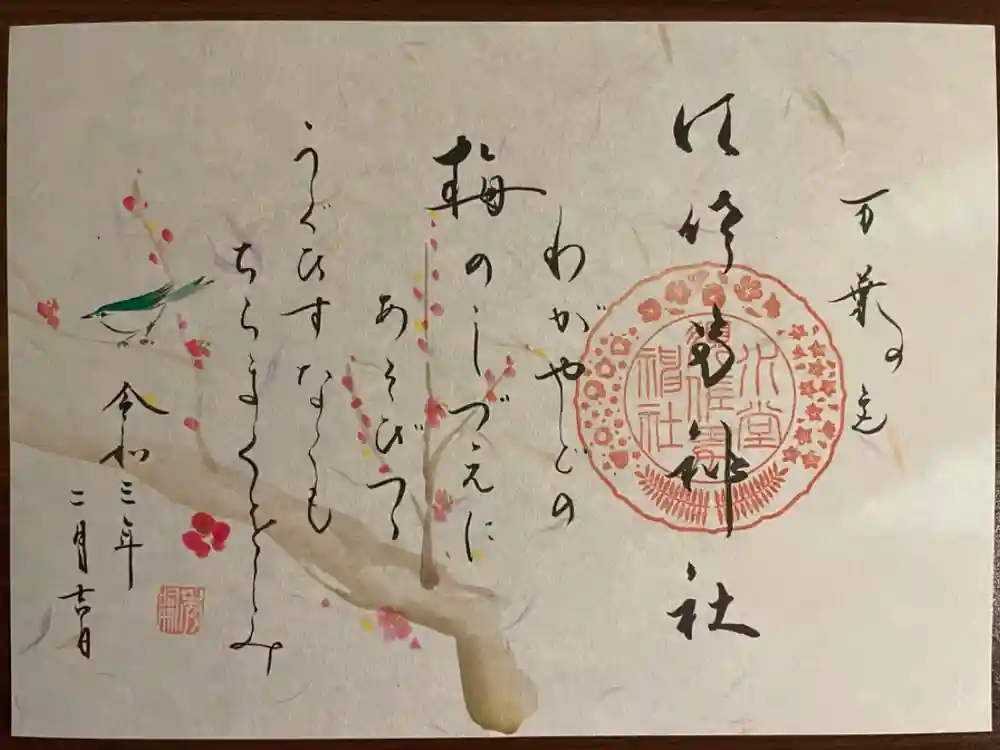 万葉の
須佐男神社
神社
わがやどの
梅のしづえに
あそびつつ
うぐひすなくも
ちらまくをしみ
令和三年
二月